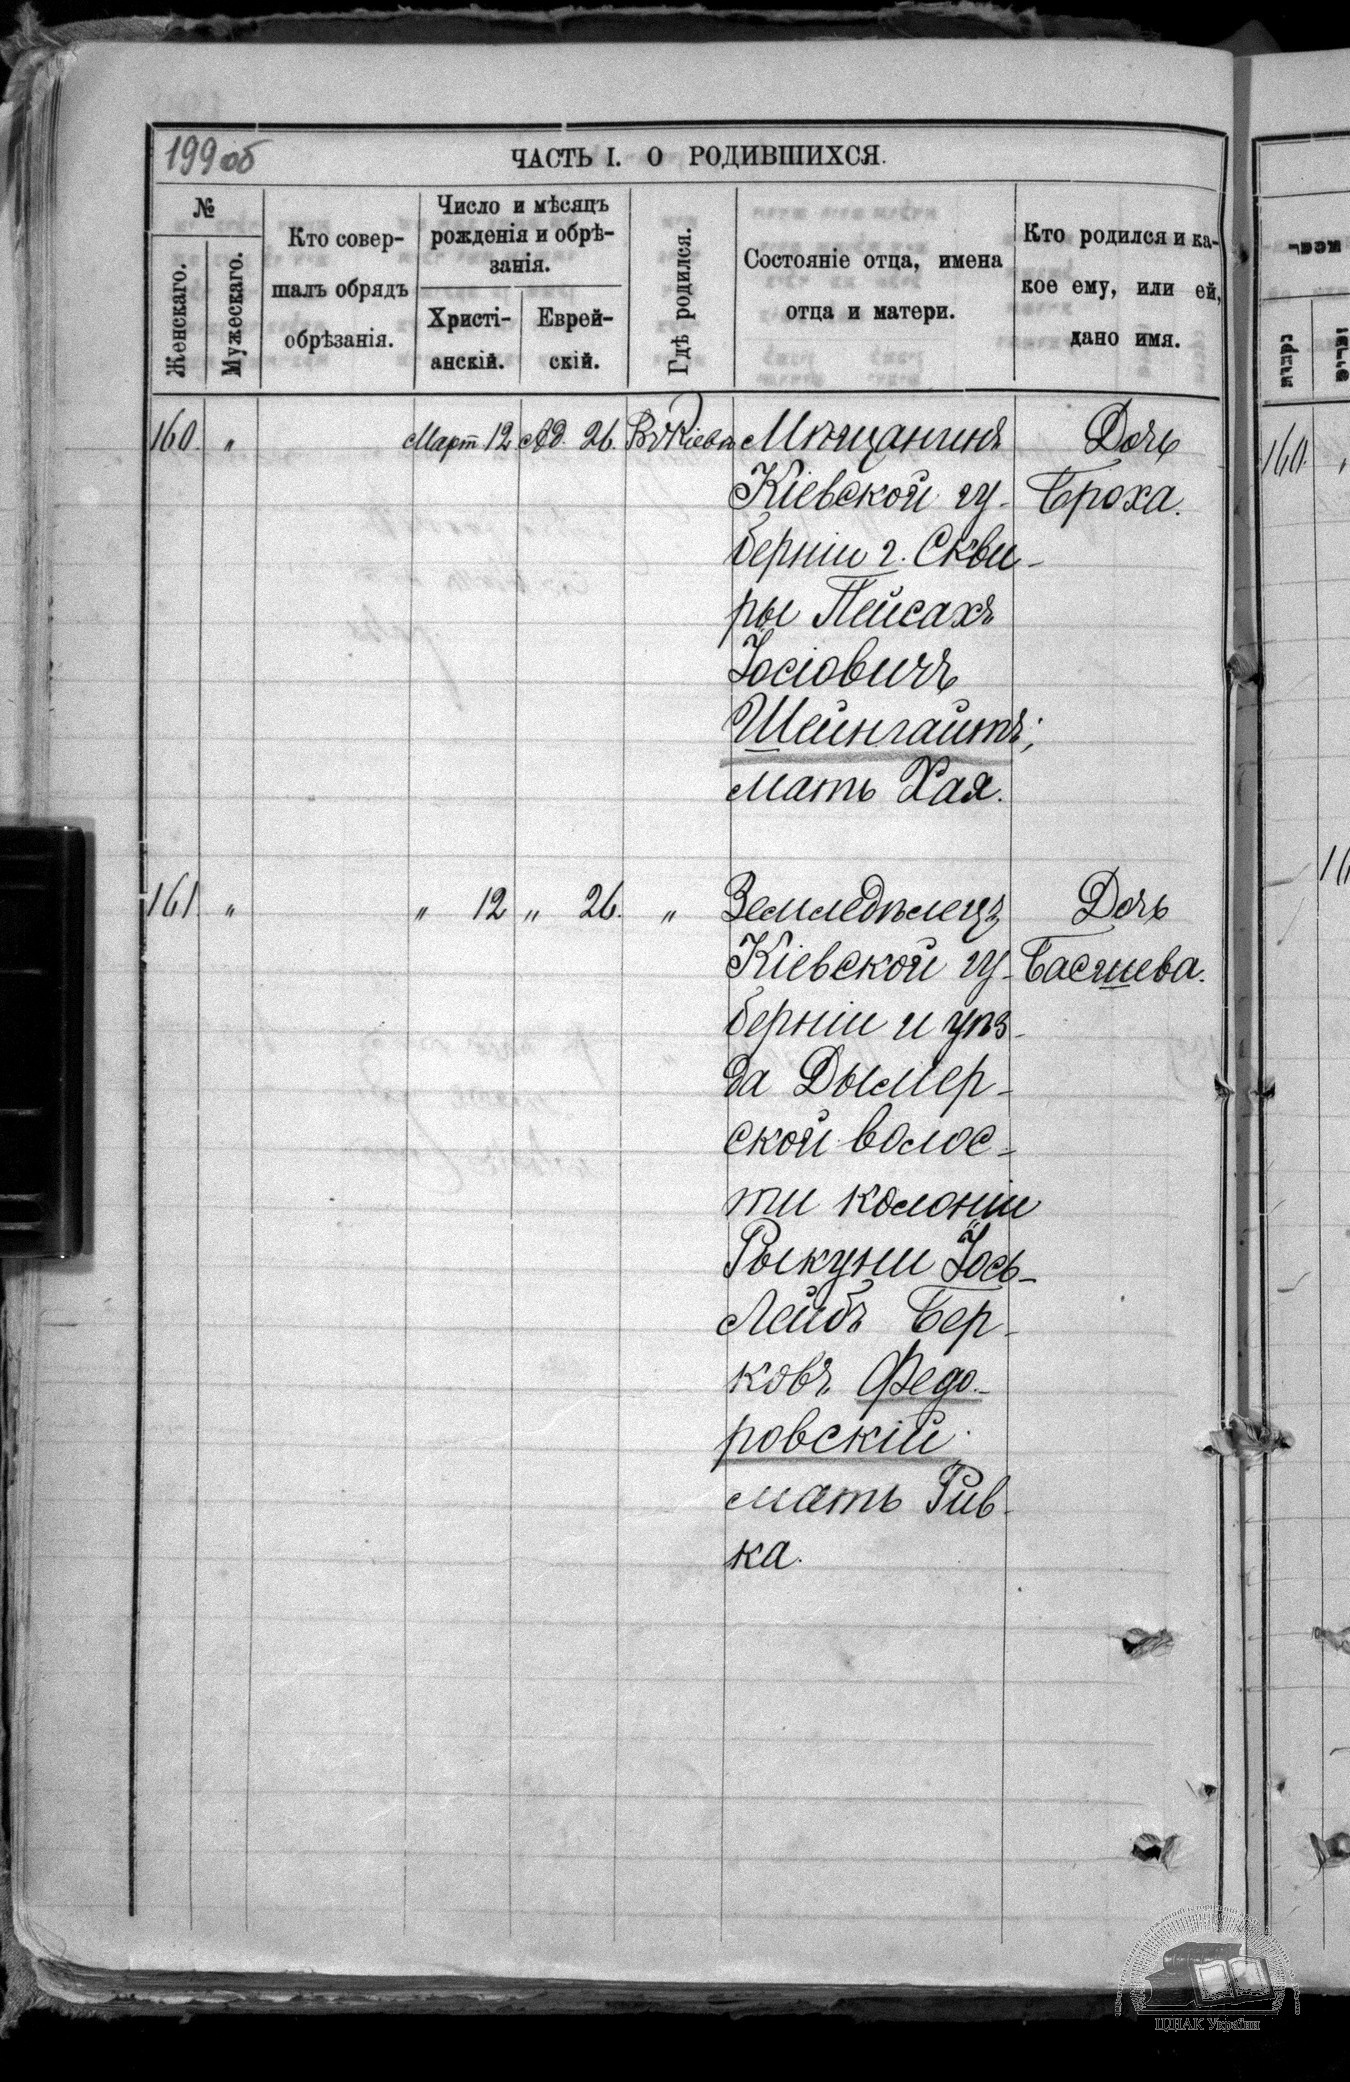 199 об
ЧАСТЬ I. О РОДИВШИХСЯ.
№
Женскаго.
Мужескаго.
Кто совер-
шалъ обрядъ
обрѣзанія.
Число и мѣсяцъ
рожденія и обрѣ-
занія.
Христі-
анскій.
Еврей-
скій.
Гдѣ родился.
Состояніе отца, имена
отца и матери.
Кто родился и ка-
кое ему, или ей,
дано имя.
160. " Март 12 Ад. 26. Въ Кіевѣ Мѣщанинъ Дочь
Кіевской гу- Броха.
берніи г. Скви-
ры Пейсахъ
Іосіовичъ
Шейнгайтъ;
мать Хая.
161. " " 12 " 26. " Земледѣлецъ Дочь
Кіевской гу- Басшева.
берніи и уѣз-
да Дымер-
ской волос-
ти колоніи
Рыкуни Іось-
Лейбъ Бер-
ковъ Федо-
ровскій
мать Рив-
ка.
160.
ЦДІАК України